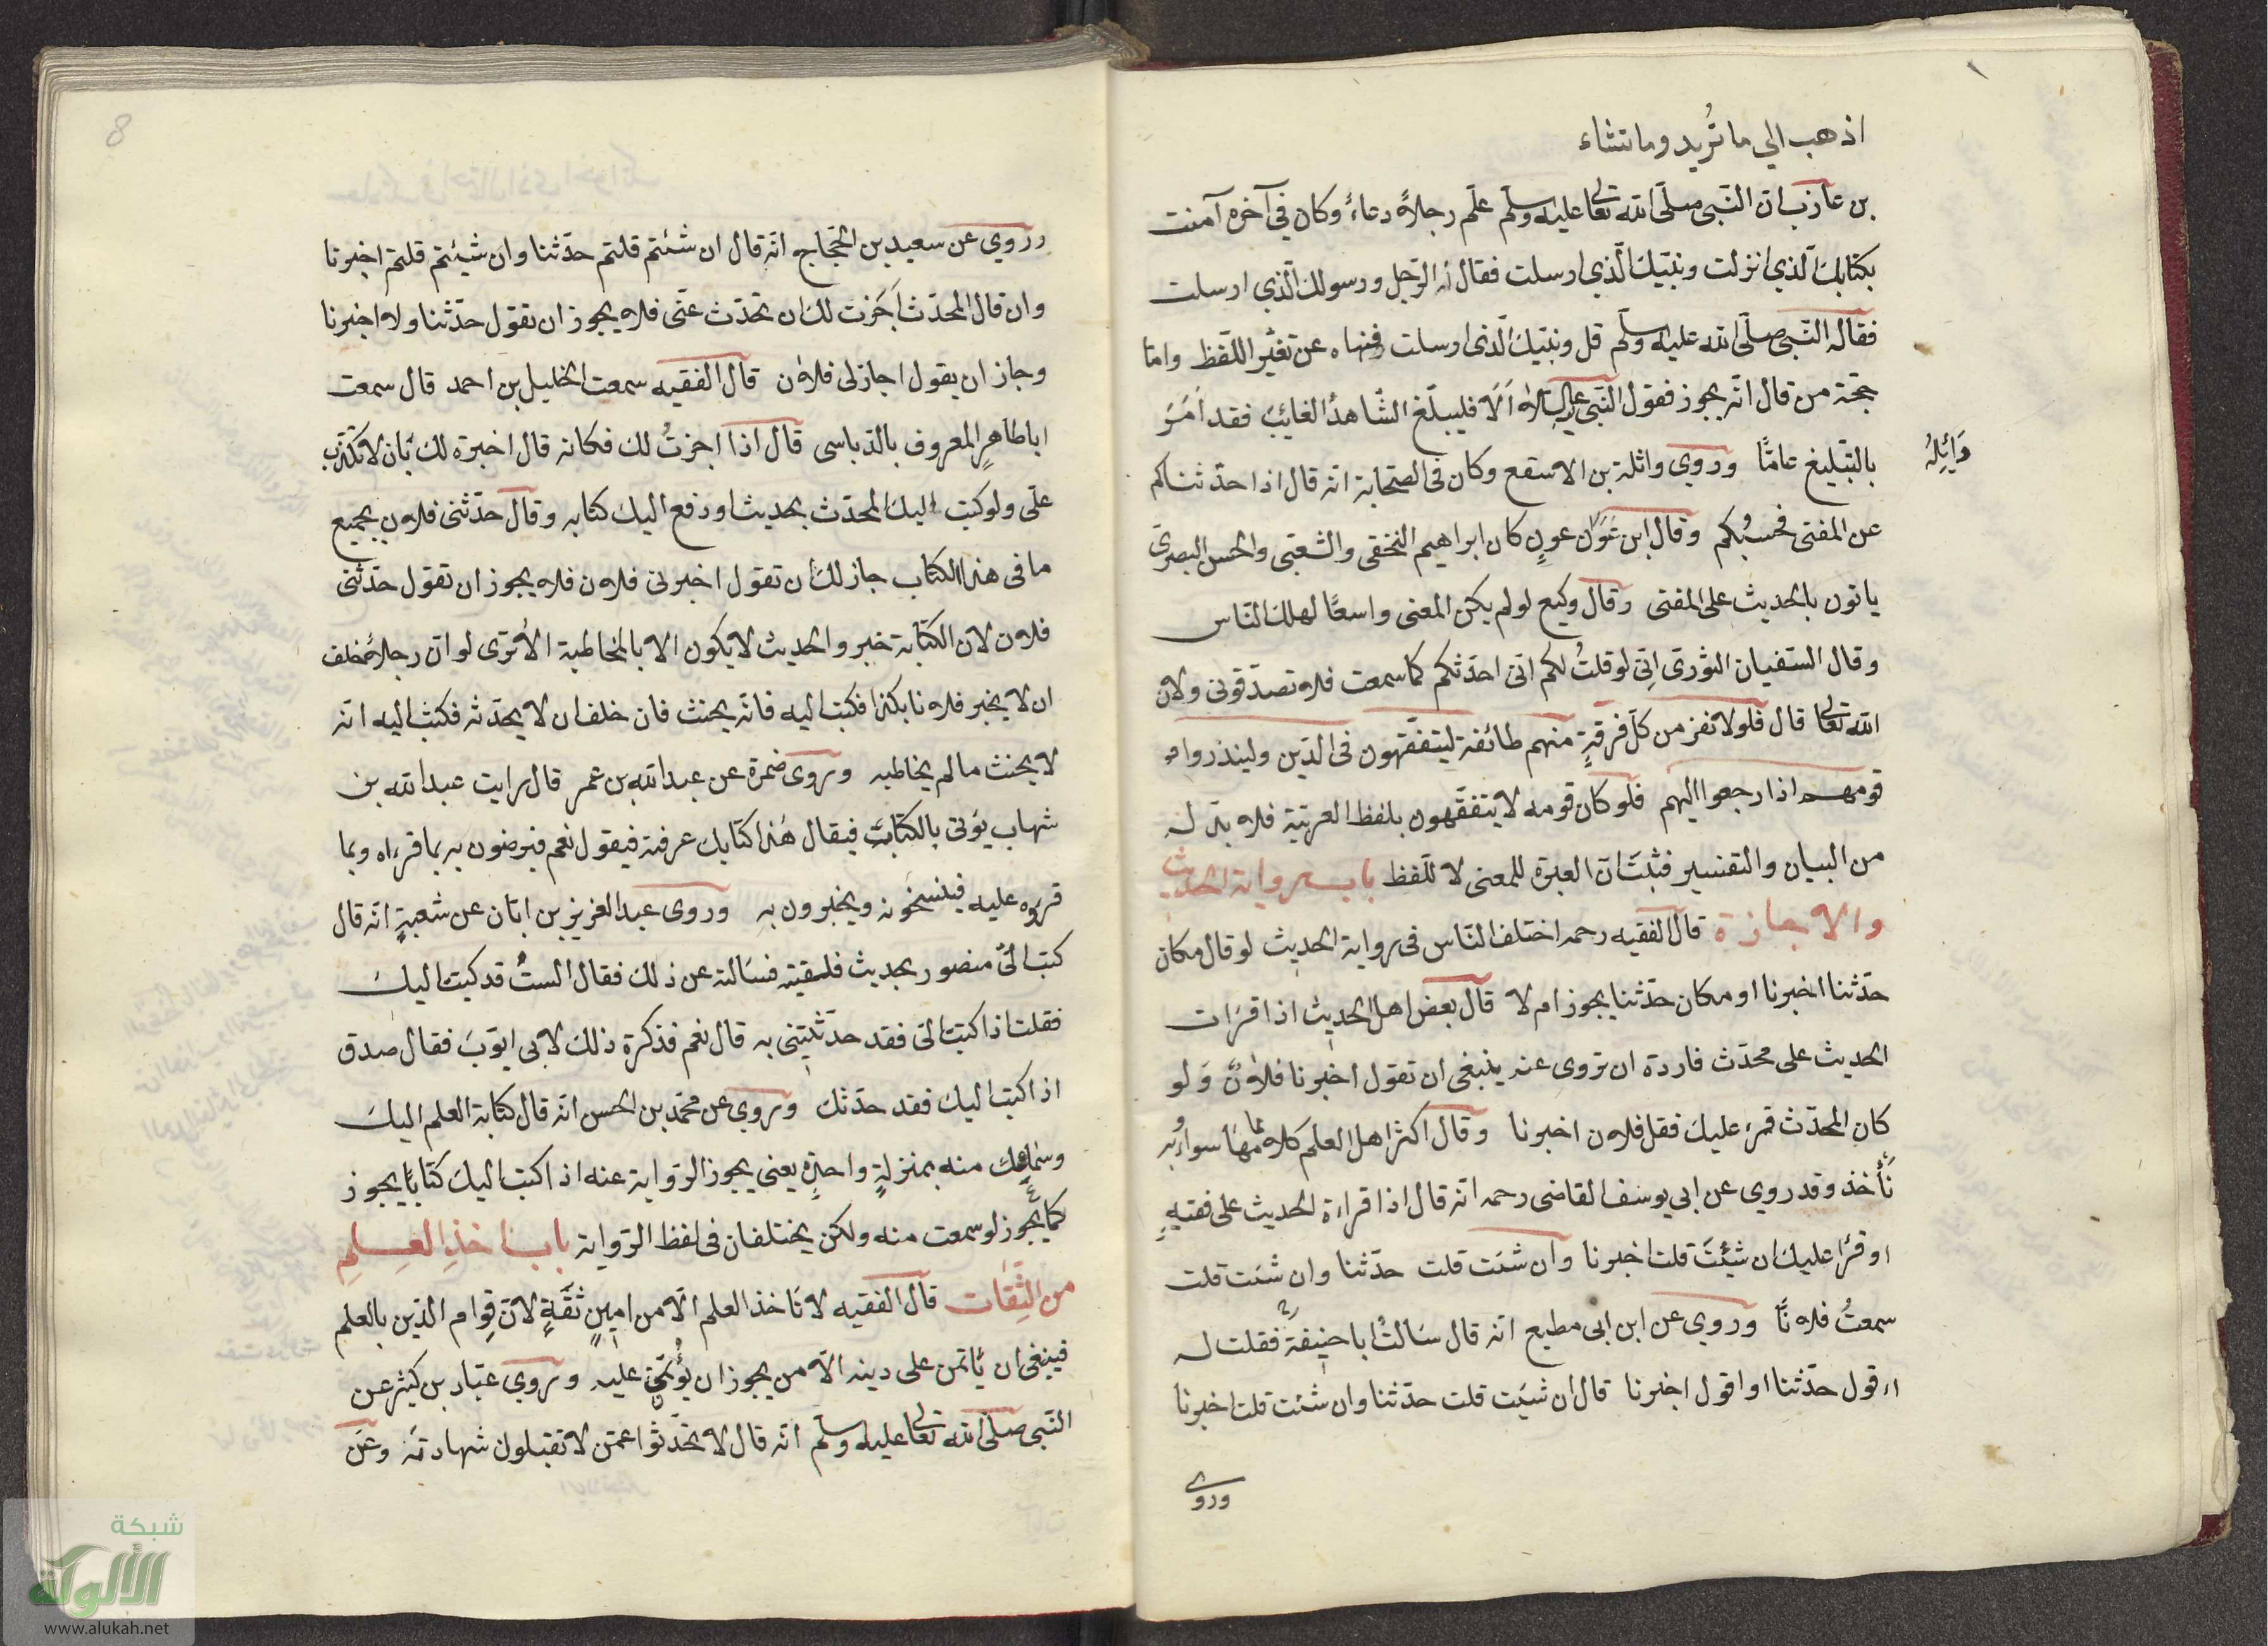 اذهب الي ما تُريد وما تشاء
بن عازب ان النّبى صلّى الله تعالى عليه وسلّم علّم رجلاً دعاءً وكان في آخره آمنت
بكتابك الّذي انزلت ونبيّك الّذي ارسلت فقال الرّجل ورسولك الّذي ارسلت
فقال له النّبى صلّى الله عليه وسلّم قل ونبيّك الّذى ارسلت فنهاه عن تغيّر اللّفظ وامّا
حجّة من قال انّه يجوز فقول النّبى عليه السلام اَلَا فليبلّغ الشّاهدُ الغائبَ فقد اَمَرَ
بالتّبليغ عامًّا وروي واثلة بن الاسقع وكان فى الصّحابة انّه قال اذا حدّثناكم
وَائِلَة
عن المفتى فحسبُكم وقال ابن عون كان ابراهيم النّخعى والشّعبى والحسن البصرىّ
ياتون بالحديث على المفتى وقال وكيع لو لم يكن المعنى واسعًا لهلك النّاس
وقال السّفيان الثّورىّ اِنّى لو قلتُ لكم انّى احدّثكم كما سمعت فلا تصدّقونى ولانّ
الله تعالى قال فلولا نفر من كلّ فرقةٍ منهم طائفة ليتفقّهون فى الدّين ولينذروا
قومهم اذا رجعوا اليهم فلو كان قومه لا يتفقّهون بلفظ العربيّة فلا بدّ له
من البيان والتفسير فثبتَ انّ العبرة للمعنى لا للّفظ باب رواية الحديث
والاجازة قال الفقيه رحمه اختلف النّاس فى رواية الحديث لو قال مكان
حدّثنا اخبرنا او مكان حدّثنا يجوز ام لا قال بعض اهل الحديث اذا قرَات
الحديث على محدّث فاردة ان تروى عنه ينبغى ان تقول اخبرنا فلاونٌ وَلو
كان المحدّث قرء عليك فقل فلاون اخبرنا وقال اكثر اهل العلم كلاهما سواء وبه
نأخذ وقد روي عن ابي يوسف القاضى رحمه انّه قال اذا قراءة الحديث على فقيهٍ
او قرَا عليك ان شئتَ قلت اخبرنا وان شئت قلت حدّثنا وان شئت قلت
سمعتُ فلانًا وروي عن ابن ابى مطيع انه قال سَالتُ ابا حنيفة فقلت له
اءقول حدّثنا او اقول اخبرنا قال ان شئت قلت حدّثنا وان شئت قلت اخبرنا
وروى
8
وروي عن سعيد بن الحجّاج انّه قال ان شئتم قلتم حدّثنا وان شيئتم قلتم اخبرنا
وان قال المحدّث اَجَزت لك ان تحدّث عنّى فلا يجوز ان تقول حدّثنا ولا اخبرنا
وجاز ان يقول اجاز لى فلاون قال الفقيه سمعت الخليل بن احمد قال سمعت
ابا طاهرٍ المعروف بالدّباسى قال اذا اجزتُ لك فكانه قال اخبرة لك بَان لا تكذب
علىّ ولو كتب اليك المحدّث بحديث او دفع اليك كتابه وقال حدّثنى فلاون بجميع
ما فى هذا الكتاب جاز لك ان تقول اخبرنى فلاون فلا يجوز ان تقول حدّثنى
فلاون لان الكتابة خبر والحديث لا يكون الا بالمخاطبة الا ترى لو انّ رجلا خلف
ان لا يخبر فلانا بكذا فكتب اليه فانّه يحنث فان خلف ان لا يحدّثه فكتب اليه انّه
لا يحنث ما لم يخاطبه وروى ضمرة عن عبد الله بن عمر قال رايت عبد الله بن
شهاب يؤتى بالكتاب فيقال هٰذا كتابك عرفته فيقول نعم فيرضون به بما قراه وبما
قروه عليه فينسخونه ويخبرون به وروى عبد العزيز بن ابان عن شعبةٍ انّه قال
كتب الىّ منصور بحديث فلقيته فسَالته عن ذلك فقال الستُ قد كتبت اليك
فقلت اذا كتبت الىّ فقد حدّثتنى به قال نعم فذكرة ذلك لابى ايّوبَ فقال صدق
اذا كتب اليك فقد حدّثك وروي عن محمّد بن الحسن انّه قال كتابة العلم اليك
وسماعك منه بمنزلةٍ واحدةٍ يعنى يجوز الرّواية عنه اذا كتب اليك كتابًا يجوز
كما يجوز لو سمعت منه ولكن يختلفان فى لفظ الرّواية باب اخذِ العِلمِ
من الثِّقات قال الفقيه لا تَاخذ العلم الّا من امينٍ ثقةٍ لانّ قِوام الدّين بالعلم
فينبغى ان يَاتمن على دينه الّا من يجوز ان يؤتمن عليه وروي عبّاد بن كثير عن
النّبى صلّى الله تعالى عليه وسلّم انّه قال لا تحدّثوا عمّن لا تقبلون شهادته وعن
شبكة
الألوكة
www.alukah.net